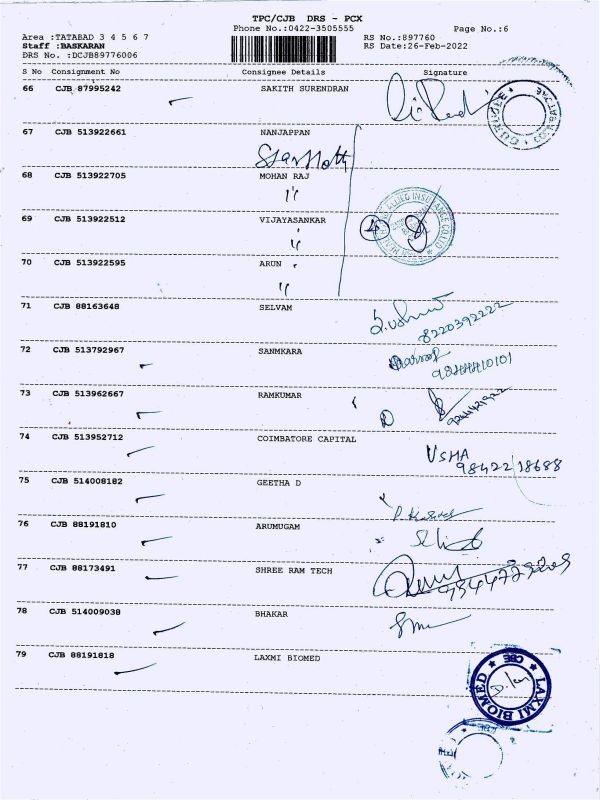 TPC/CJB DRS - PCX
Phone No.:0422-3505555
Page No.:6
Area :TATABAD 3 4 5 6 7
RS No.:897760
Staff :BASKARAN
RS Date:26-Feb-2022
DRS No. :DCJB89776006
S No Consignment No Consignee Details Signature
66 CJB 87995242 SAKITH SURENDRAN
67 CJB 513922661 NANJAPPAN
68 CJB 513922705 MOHAN RAJ
69 CJB 513922512 VIJAYASANKAR
70 CJB 513922595 ARUN
71 CJB 88163648 SELVAM
8220392222
72 CJB 513792967 SANMKARA
73 CJB 513962667 RAMKUMAR
74 CJB 513952712 COIMBATORE CAPITAL
USHA
98422 18688
75 CJB 514008182 GEETHA D
76 CJB 88191810 ARUMUGAM
77 CJB 88173491 SHREE RAM TECH
78 CJB 514009038 BHAKAR
79 CJB 88191818 LAXMI BIOMED
LAXMI BIOMED
CBE